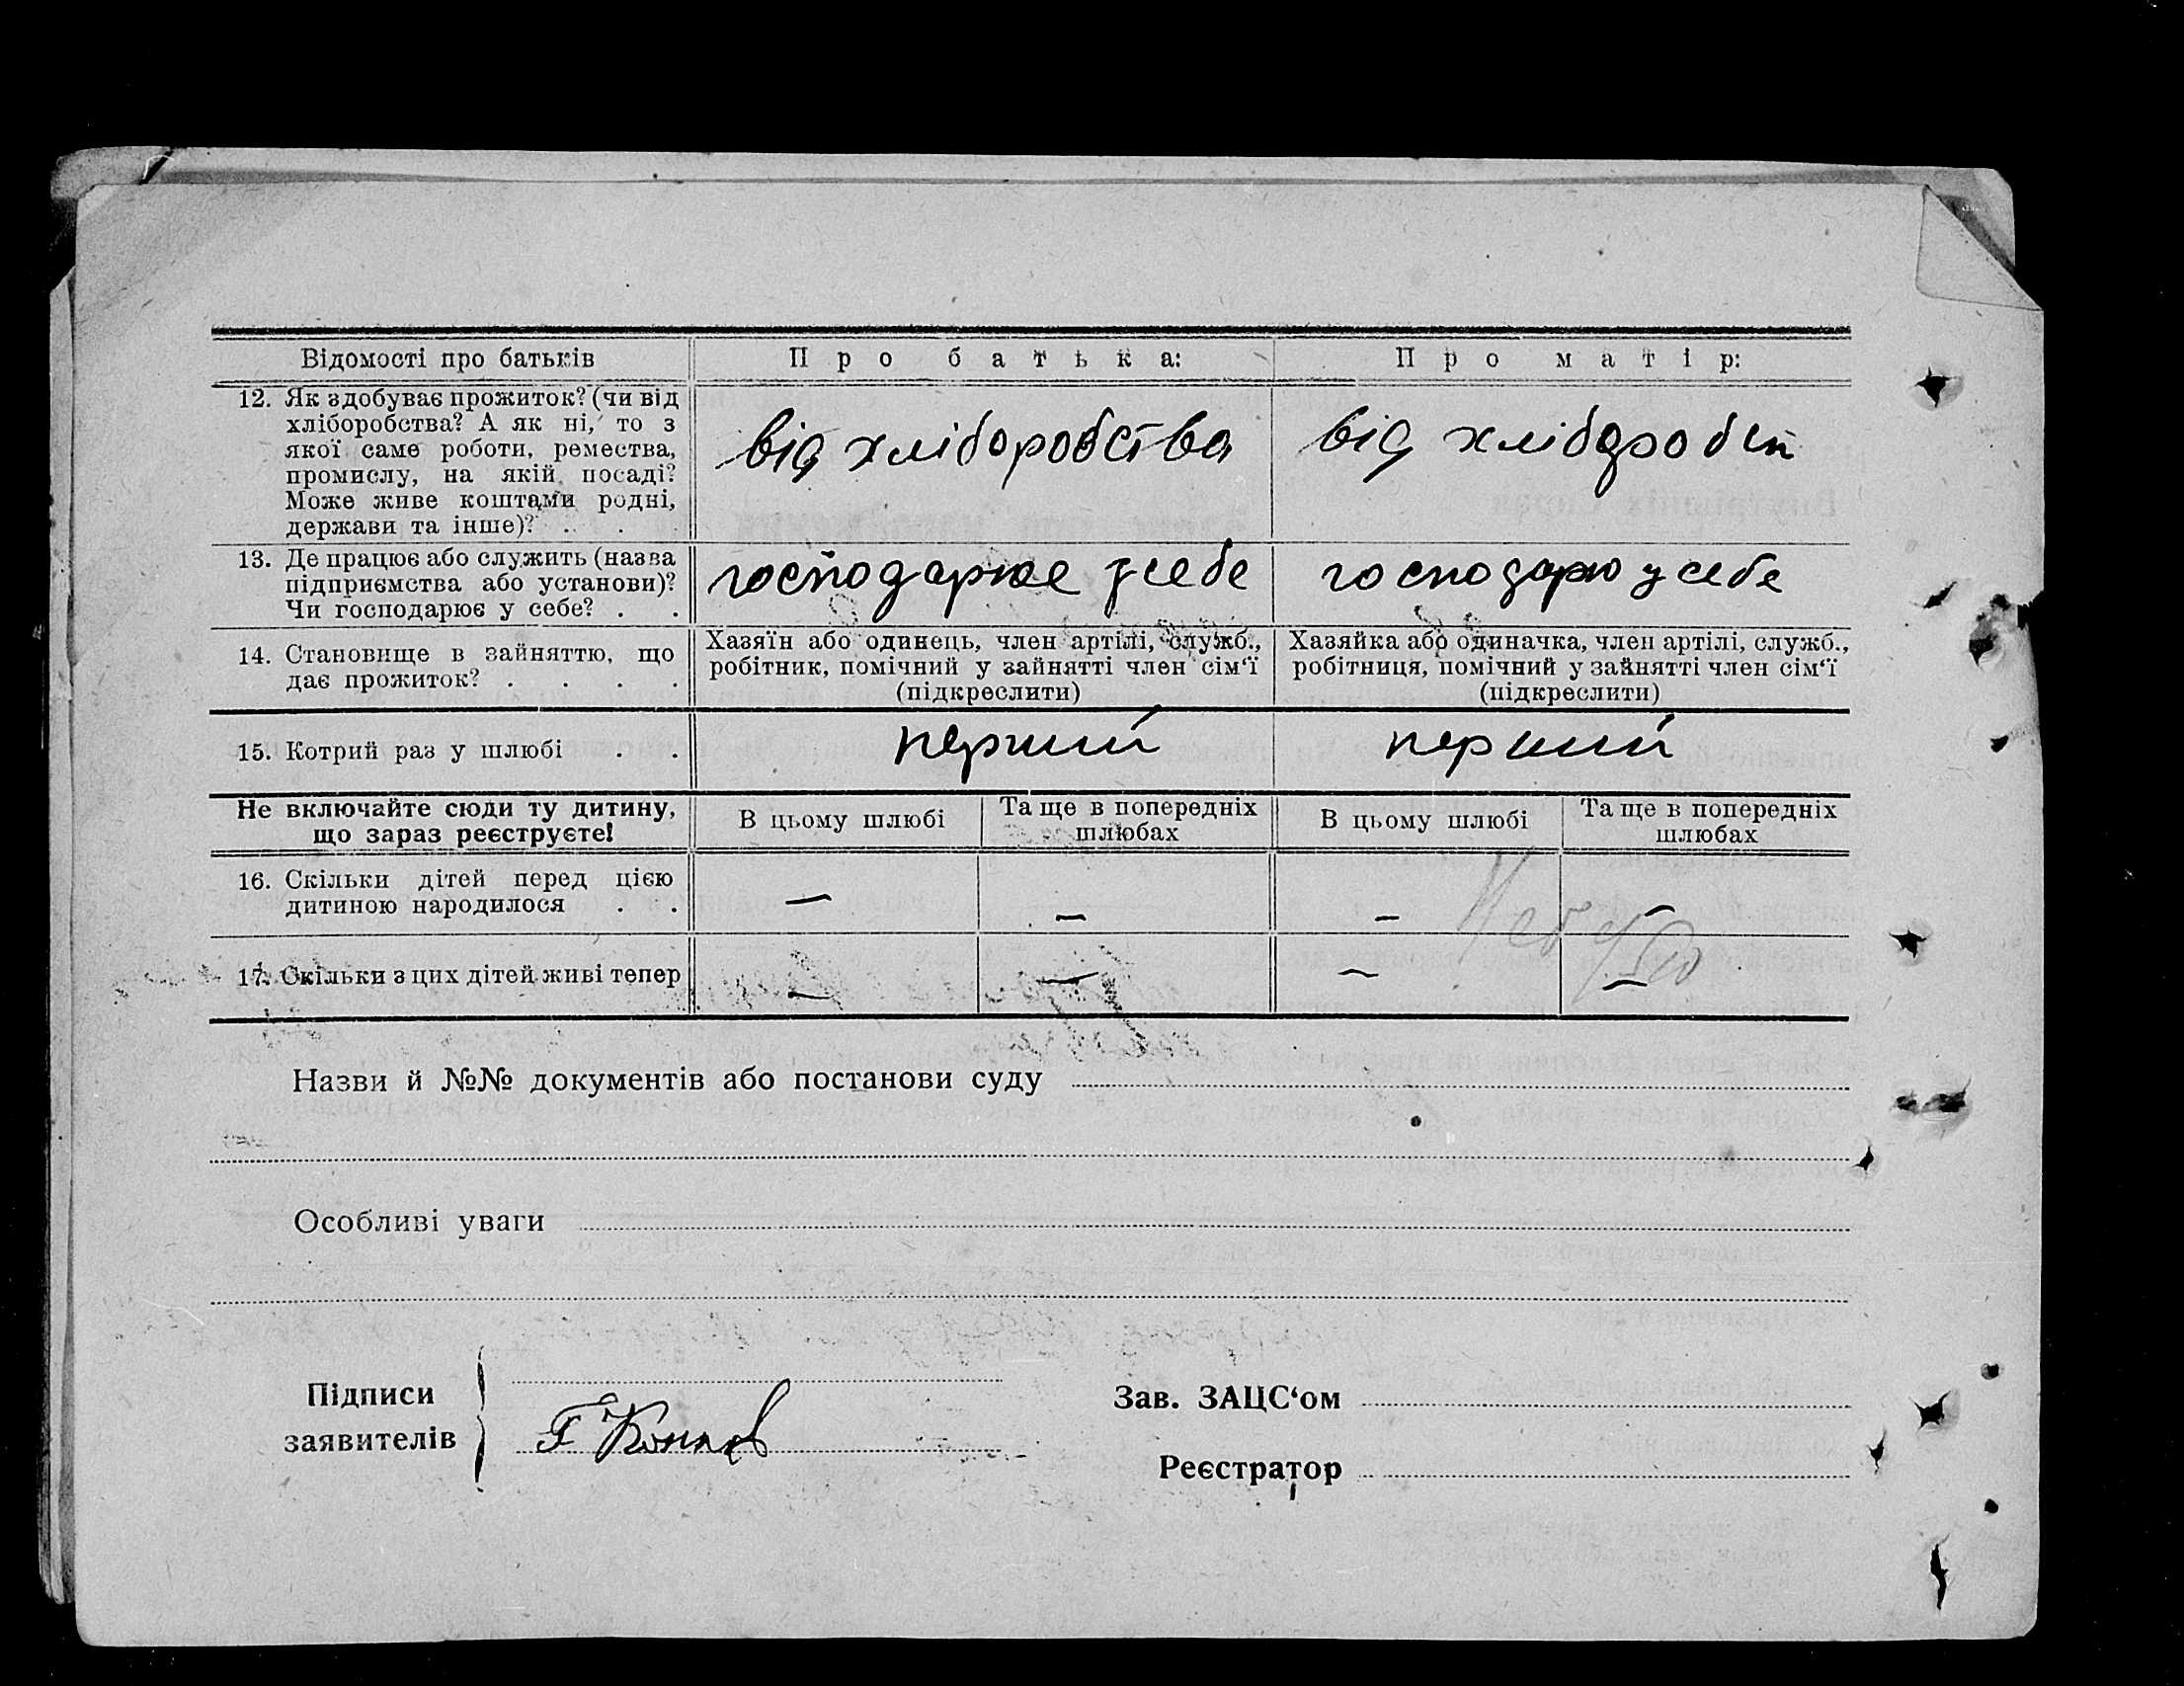 Відомості про батьків
Про батька:
Про матір:
12. Як здобуває прожиток? (чи від
хліборобства? А як ні, то з
якої саме роботи, ремества,
промислу, на якій посаді?
Може живе коштами родні,
держави та інше)? . .
від хліборобства
від хлібороб
13. Де працює або служить (назва
підприємства або установи)?
Чи господарює у себе? . .
господарює у себе
господарю у себе
14. Становище в зайняттю, що
дає прожиток? . . . .
Хазяїн або одинець, член артілі, служб.,
робітник, помічний у зайнятті член сім‘ї
(підкреслити)
Хазяйка або одиначка, член артілі, служб.,
робітниця, помічний у зайнятті член сім‘ї
(підкреслити)
15. Котрий раз у шлюбі . .
перший
перший
Не включайте сюди ту дитину,
що зараз реєструєте!
В цьому шлюбі
Та ще в попередніх
шлюбах
В цьому шлюбі
Та ще в попередніх
шлюбах
16. Скільки дітей перед цією
дитиною народилося . .
— — — —
17. Скільки з цих дітей живі тепер
— — — —
Назви й №№ документів або постанови суду
Особливі уваги
Підписи
заявителів
Зав. ЗАЦС‘ом
Реєстратор